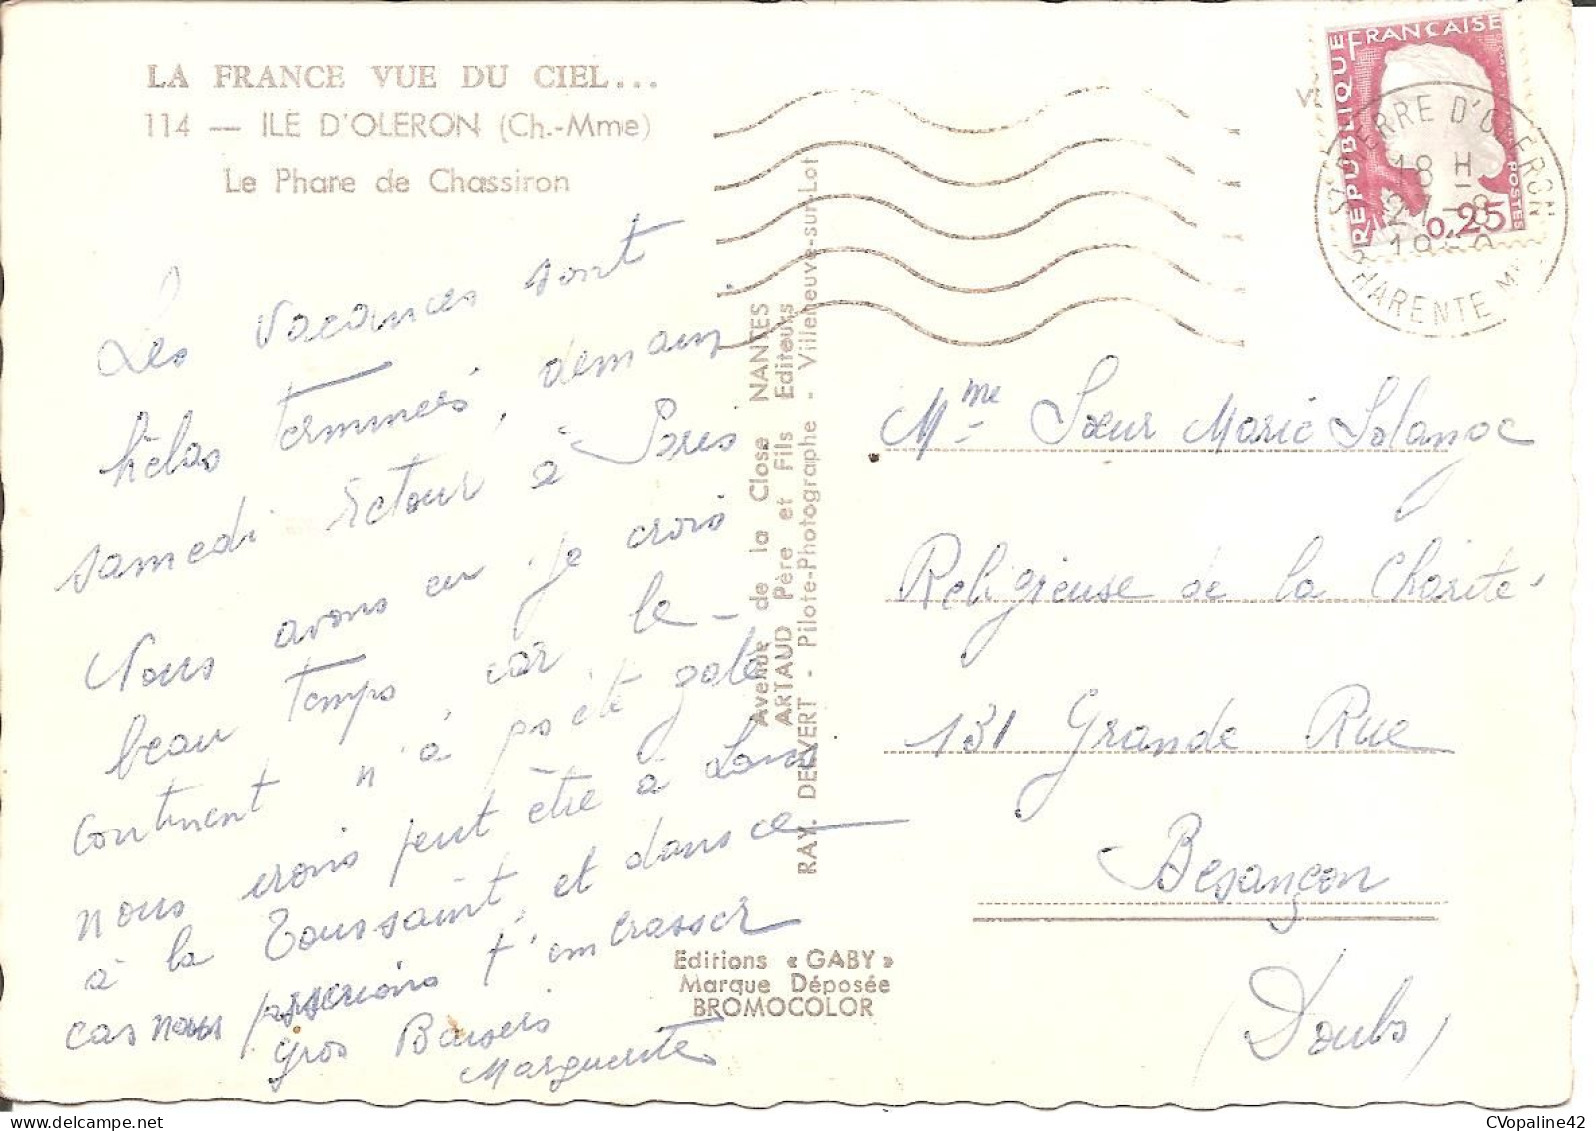 LA FRANCE VUE DU CIEL...
114 — ILE D'OLERON (Ch.-Mme)
Le Phare de Chassiron
Les vacances sont
hèlas terminées, demain
samedi retour à Paris
Nous avons eu je crois
beau temps car le
continent n'a pas été gaté
nous irons peut être à
à la Toussaint, et dans ce
cas nous passerions t'embrasser
Gros Baisers
Marguerite
Avenue de la Close NANTES
ARTAUD Père et Fils Editeurs
RAY. DELVERT - Pilote-Photographe - Villeneuve-sur-Lot
Editions « GABY »
Marque Déposée
BROMOCOLOR
REPUBLIQUE FRANCAISE
POSTES
0,25
ST PIERRE D'OLERON
18 H
21 - 8
CHARENTE Me
Mme Sœur Marie Solange
Religieuse de la Charité
131 Grande Rue
Besançon
(Doubs)
CVopaline42